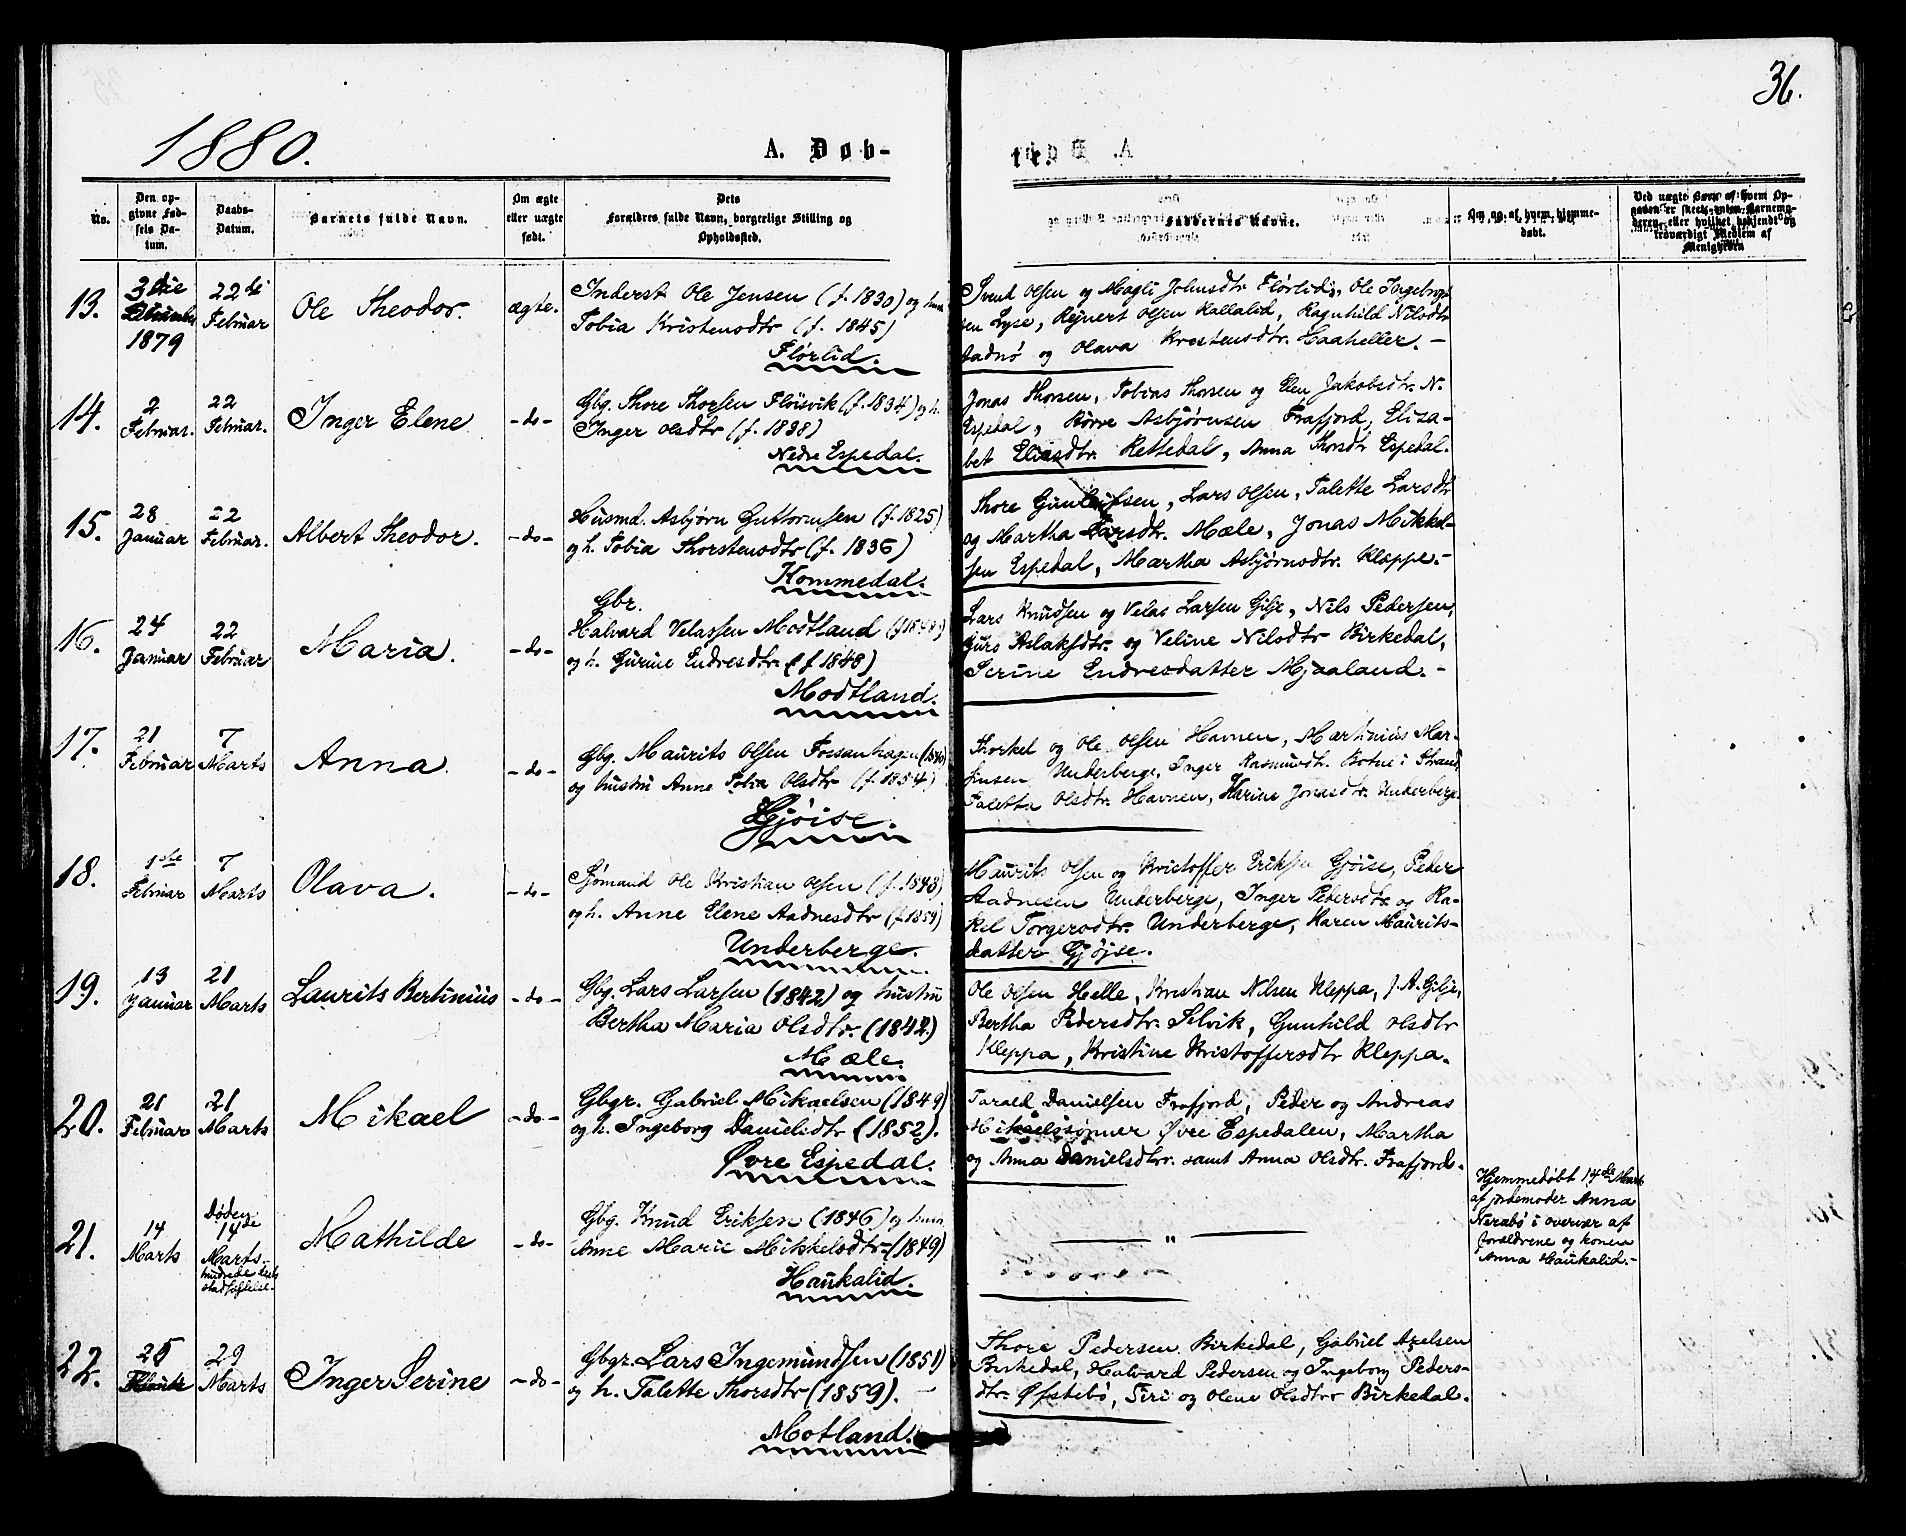 36.
1880.
A. Døb-
te.
No.
Den op-
givne Fød-
sels Da-
tum.
Daabs-
Datum.
Barnets fulde Navn.
Om ægte
eller uægte
født.
Dets
Forældres fulde Navn, borgerlige Stilling og
Opholdssted.
Faddernes Navne.
Om og af hvem hjemme-
døbt.
Menigheden
13.
3die
1879
22de
Februar
Ole Theodor.
ægte.
Inderst Ole Jensen (f. 1830) og hans
Tobia Kristensdtr (f. 1845)
Flørlid.
Svend Olsen og Magli Johnsdtr Flørlid, Ole Ingebregt-
sen Lyse, Rejnert Olsen Kallalid, Ragnhild Nilsdtr
Aadnø og Olava Krestensdtr. Haaheller. -
14.
2
Februar.
22
Februar.
Inger Elene
-do-
Gbg. Thore Thorsen Fløisvik (f. 1834) og h.
Inger Olsdtr (f. 1838)
Nedre Espedal.
Jonas Thorsen, Tobias Thorsen og Elen Jakobsdtr. N.
Espedal, Børre Asbjørnsen Frafjord, Eliza-
bet Eliasdtr. Rettedal, Anna Thorsdtr Espedal.
15.
28
Januar
22
Februar.
Albert Theodor.
-do-
Husmd. Asbjørn Guttormsen (f. 1825)
og h. Tobia Thorstensdtr (f. 1836)
Kommedal.
Thore Gunleifsen, Lars Olsen, Talette Larsdtr
og Martha Larsdtr. Mæle, Jonas Mikkel-
sen Espedal, Martha Asbjørnsdtr. Kleppe. -
16.
24
Januar
22
Februar
Maria.
-do-
Gbr.
Halvard Velassen Modtland (f 1848)
og h. Gurine Endresdtr. (f 1848)
Modtland.
Lars Knudsen og Velas Larsen Gilje, Nils Pedersen,
Gurs Aslaksdtr. og Veline Nilsdtr Birkedal,
Serine Endresdatter Mjaaland. -
17.
21
Februar
7
Marts
Anna
-do-
Gbg. Maurits Olsen Fossanhagen
og hustru Anne Tobia Olsdtr (f. 1854)
Gjøise.
Thorkel og Ole Olsen Havnen, Martinius Mar-
tinsen Underberge, Inger Rasmusdt. Botne i Strand,
Taletta Olsdtr. Havnen, Karine Jonasdtr. Underberge.
18.
1ste
Februar
7
Marts
Olava.
-do-
Sjømand Ole Kristian Olsen (f. 1848)
og h. Anne Elene Aadnesdtr (f. 1859)
Underberge.
Maurits Olsen og Kristoffer Eriksen Gjøise, Peder
Aadnesen Underberge, Inger Pedersdtr og Ra-
kel Torgersdtr. Underberge, Karen Maurits-
datter Gjøjse.
19.
13
Januar
21
Marts
Laurits Bertinius
-do-
Gbg. Lars Larsen (1842) og hustru
Bertha Maria Olsdtr. (1842)
Mæle.
Ole Olsen Helle, Kristian Nilsen Kleppa, J. A. Gilje,
Bertha Pedersdtr. Selvik, Gunhild Olsdtr
Kleppa, Kristine Kristoffersdtr Kleppa.
20.
21
Februar
21
Marts
Mikael
-do-
Gbgr. Gabriel Mikaelsen (1849)
og h. Ingeborg Danielsdtr (1852).
Øvre Espedal.
Tarald Danielsen Frafjord, Peder og Andreas
Mikaelssønner Øvre Espedalen, Martha
og Anna Danielsdtr. samt Anna Olsdtr. Frafjord.
21.
14
Marts
Døden
14de
Marts
stadfæstelse.
Mathilde
-do-
Gbg. Knud Eriksen (1846) og hans
Anne Marie Mikkelsdtr (1849)
Haukalid.
— " —
Hjemmedøbt 14de Marts
af jordemoder Anna
Nerabø i overvær af
forældrene og konen
Anna Haukalid. -
22.
25
29
Marts
Inger Serine
-do-
Gbgr. Lars Ingemundsen (1851)
og h. Talette Thorsdtr (1859). -
Motland.
Thore Pedersen Birkedal, Gabriel Axelsen
Birkedal, Halvard Pedersen og Ingeborg Peders-
dtr. Øfstebø, Siri og Olene Olsdtr Birkedal.